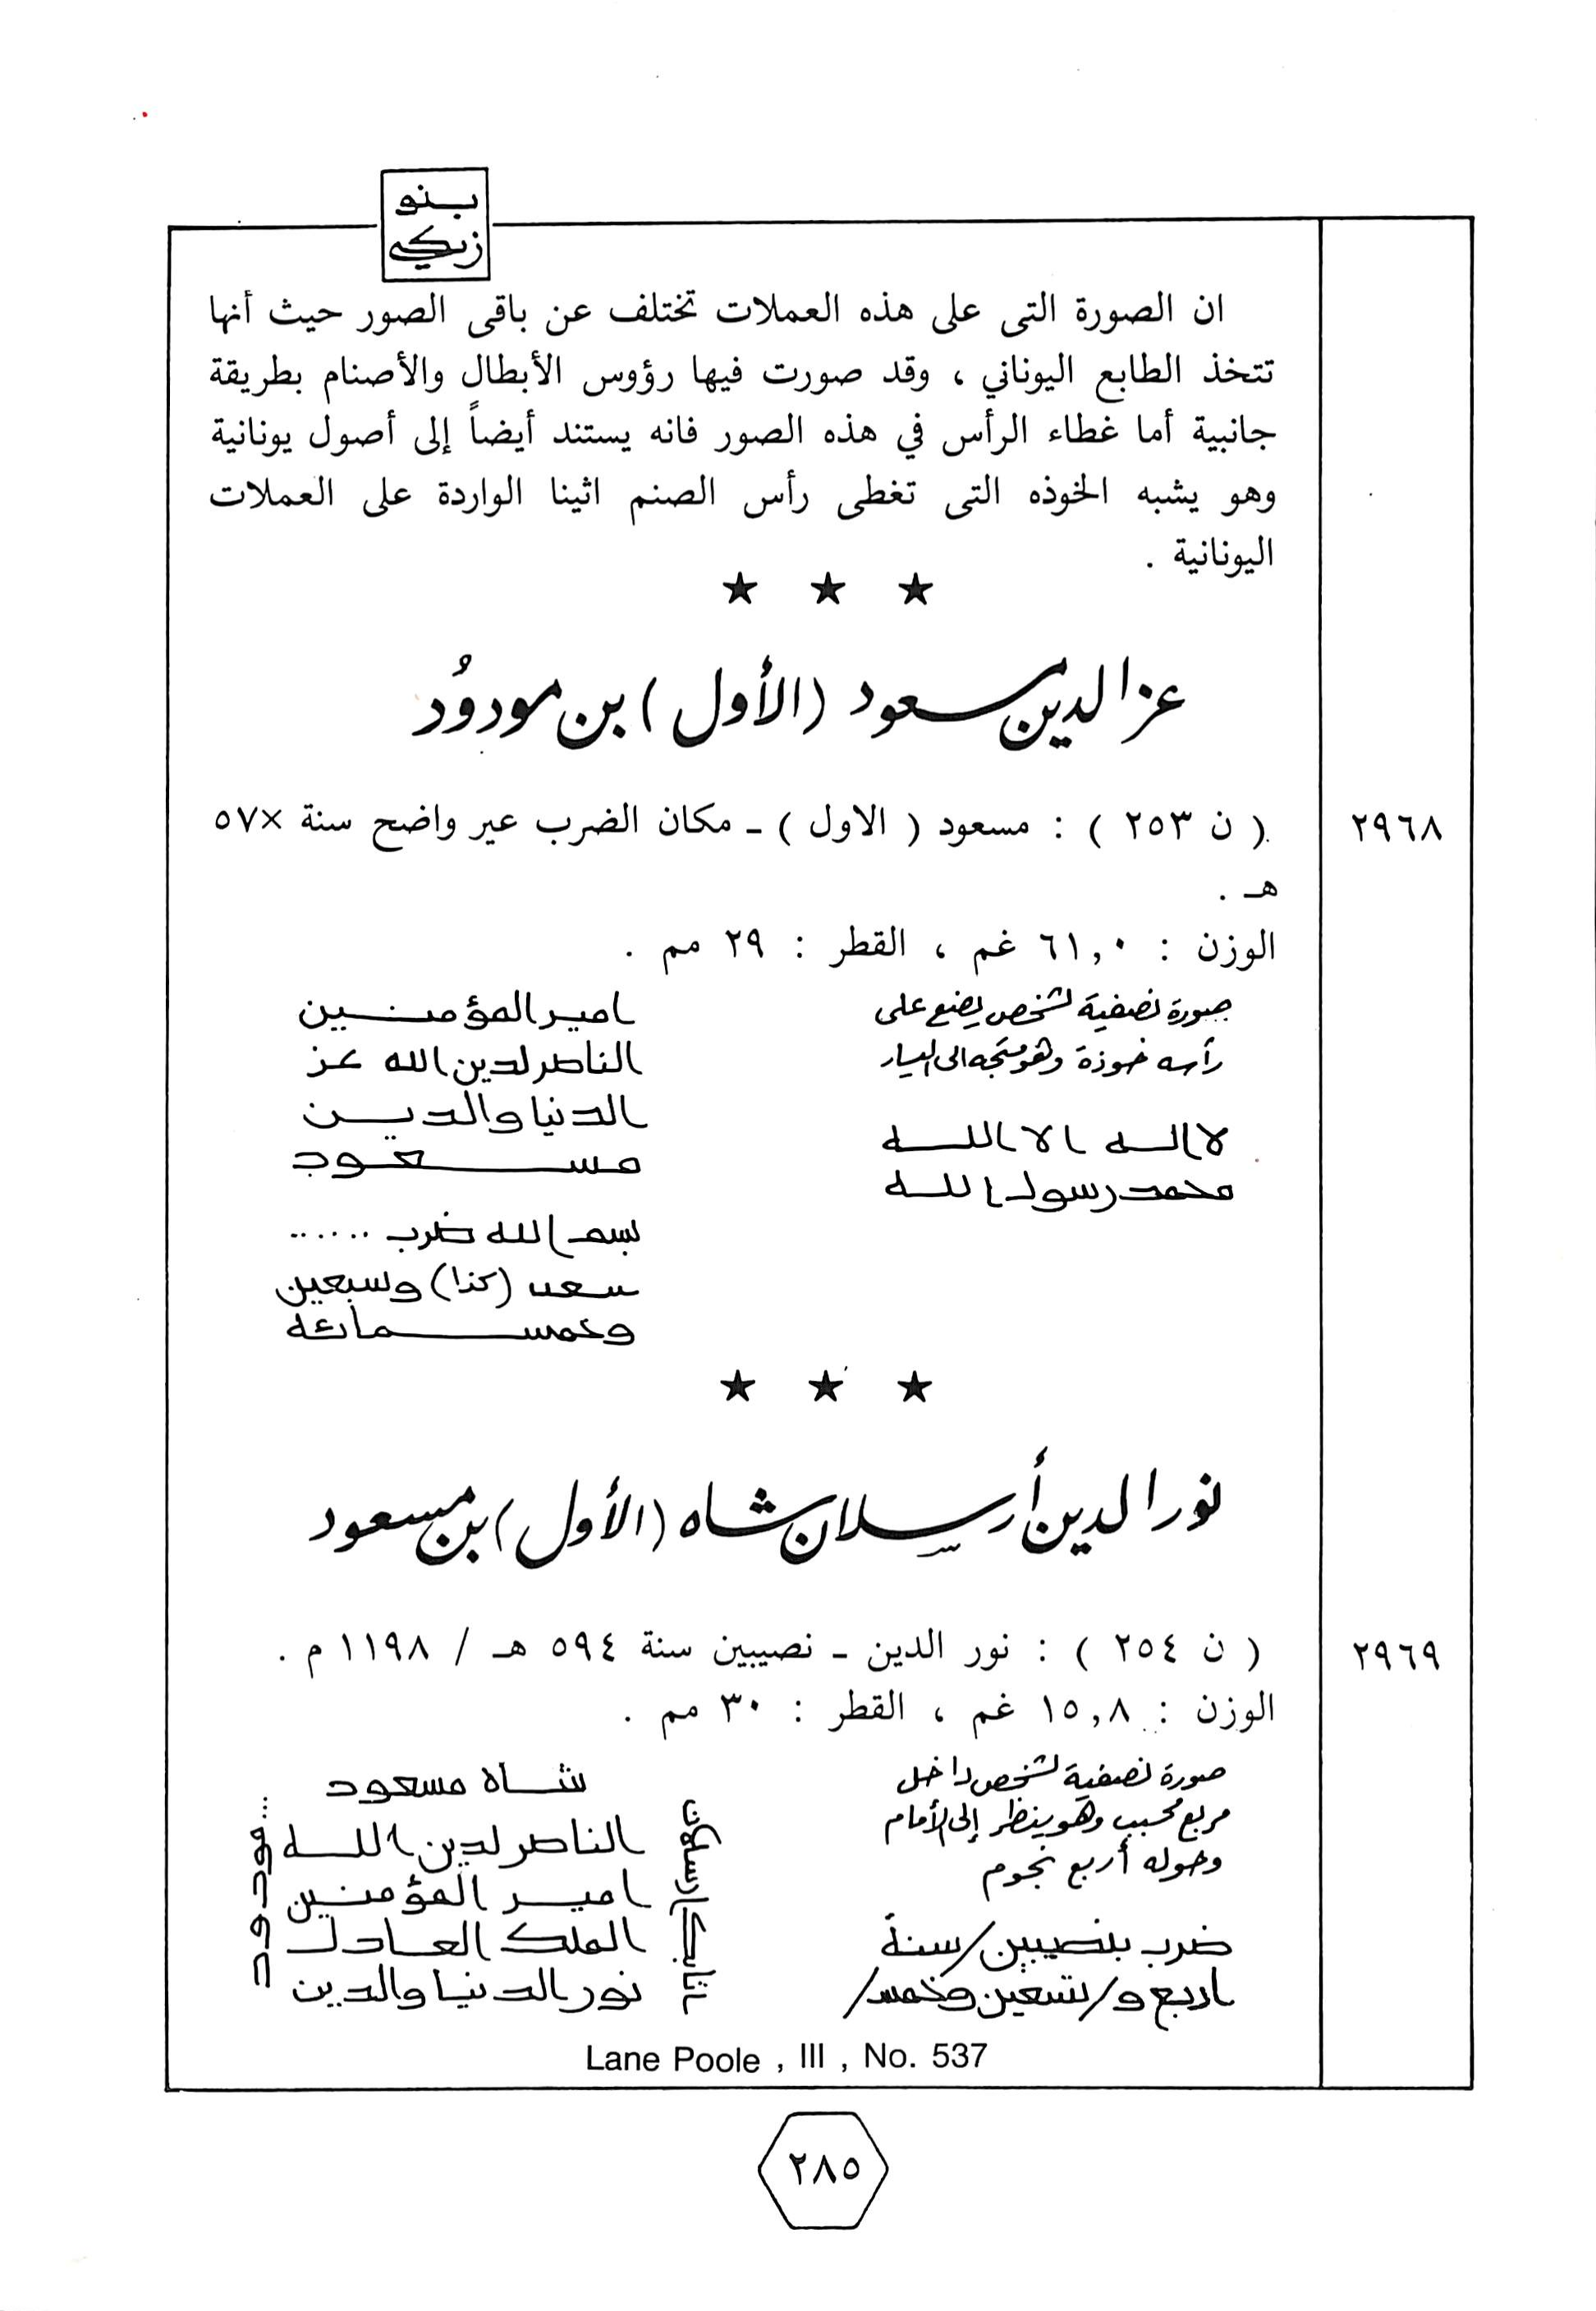 بنو
زنكي
ان الصورة التى على هذه العملات تختلف عن باقى الصور حيث أنها
تتخذ الطابع اليوناني ، وقد صورت فيها رؤوس الأبطال والأصنام بطريقة
جانبية أما غطاء الرأس في هذه الصور فانه يستند أيضاً إلى أصول يونانية
وهو يشبه الخوذه التى تغطى رأس الصنم اثينا الواردة على العملات
اليونانية .
★ ★ ★
عز الدين مسعود (الأول) بن مودُود
٢٩٦٨
( ن ٢٥٣ ) : مسعود ( الاول ) ـ مكان الضرب عير واضح سنة ×٥٧
هـ .
الوزن : ٦١,٠ غم ، القطر : ٢٩ مم .
صورة نصفية لشخص يضع على
رأسه خوذة وهو متجه الى اليسار
لا اله الا الله
محمد رسول الله
امير المؤمنين
الناصر لدين الله عز
الدنيا والدين
مسعود
بسم الله ضرب ......
سعىں (كذا) وسبعين
وخمسمائه
★ ★ ★
نور الدين أرسلان شاه (الأول) بن مسعود
٢٩٦٩
( ن ٢٥٤ ) : نور الدين ـ نصيبين سنة ٥٩٤ هـ / ١١٩٨ م .
الوزن : ١٥,٨ غم ، القطر : ٣٠ مم .
صورة نصفية لشخص داخل
مربع محبب وهو ينظر إلى الأمام
وحوله أربع نجوم
ضرب بنصيبين/سنة
اربع و/تسعين وخمس/
شاه مسعود
الناصر لدين الله
امير المؤمنين
الملك العادل
نور الدنيا والدين
اتابك ارسلان
مودود ...
Lane Poole , III , No. 537
٢٨٥